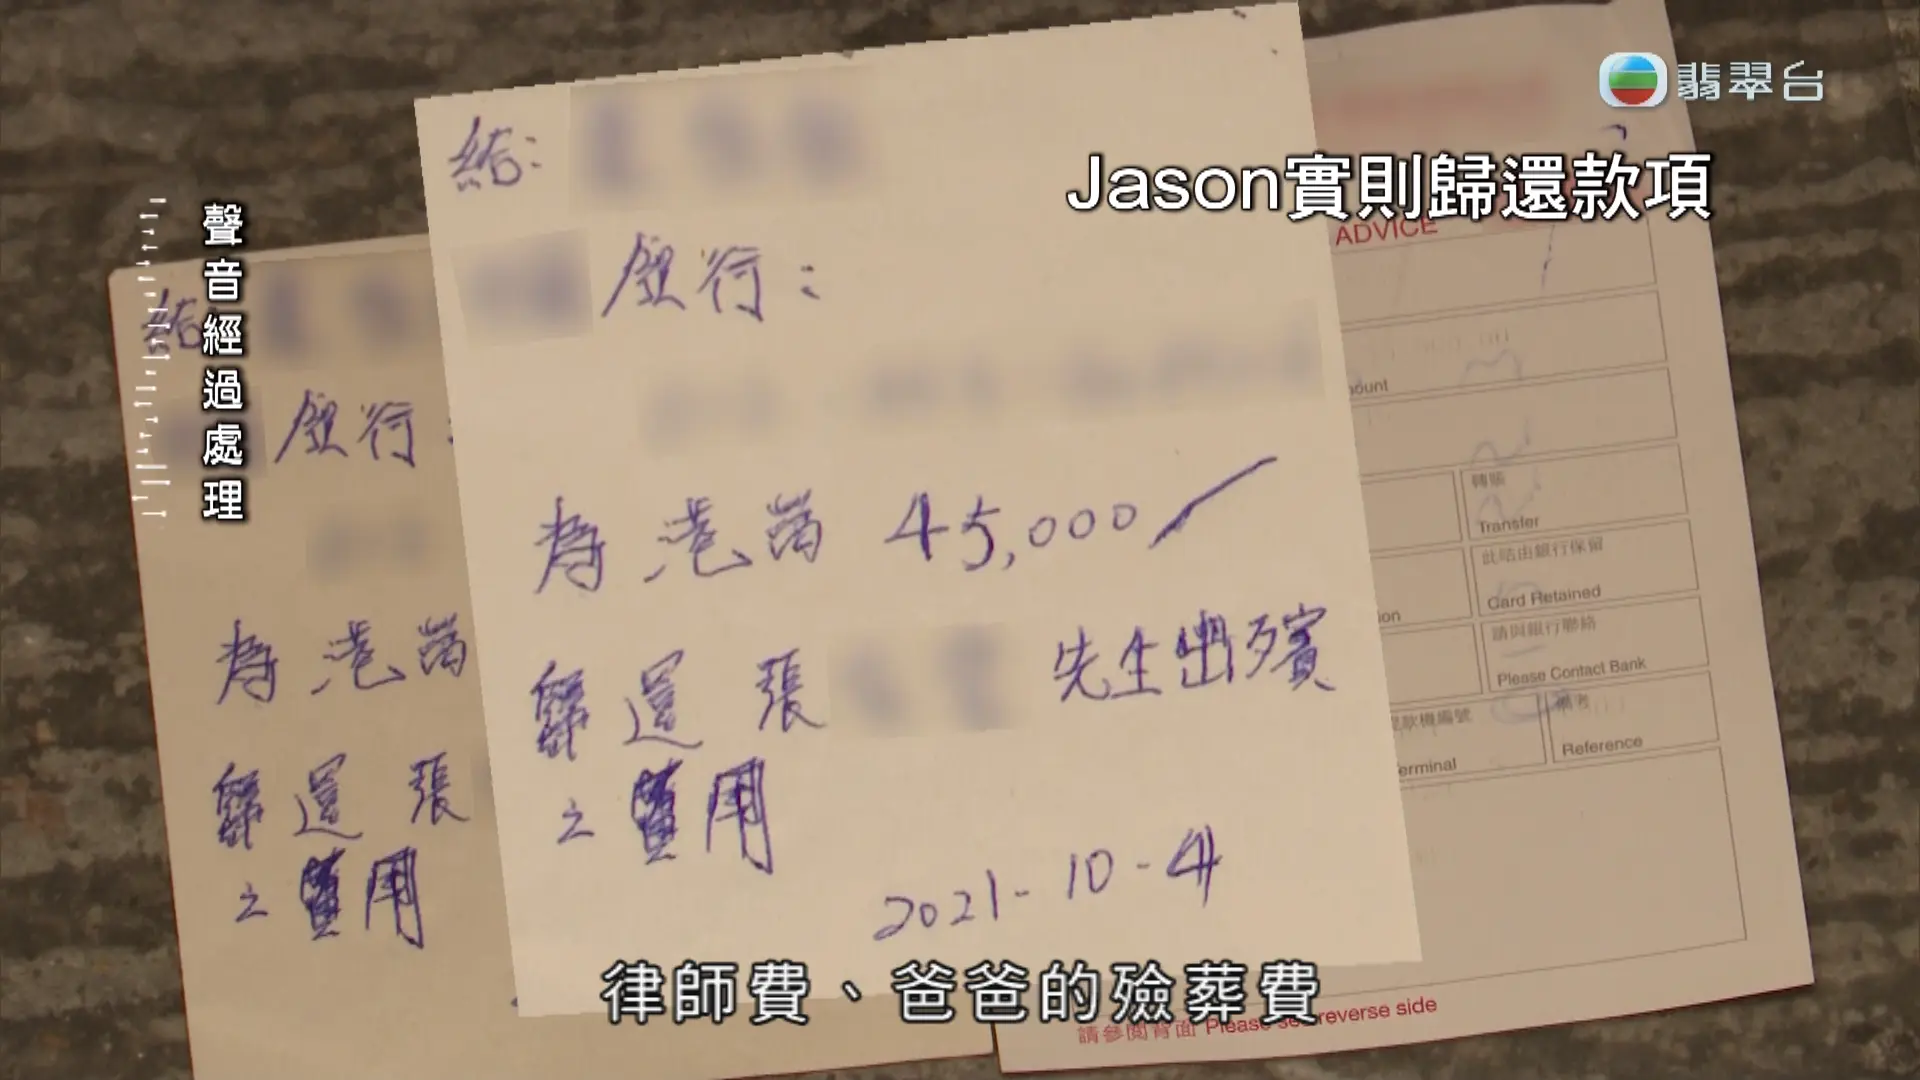 翡翠台
Jason實則歸還款項
聲音經過處理
給:
銀行:
為港幣 45,000
歸還張 先生出殯
之費用
2021-10-4
給
銀行:
為港幣
歸還張
之費用
ADVICE
轉賬
Transfer
此咭由銀行保留
Card Retained
請與銀行聯絡
Please Contact Bank
Reference
請參閱背面 Please see reverse side
律師費、爸爸的殮葬費